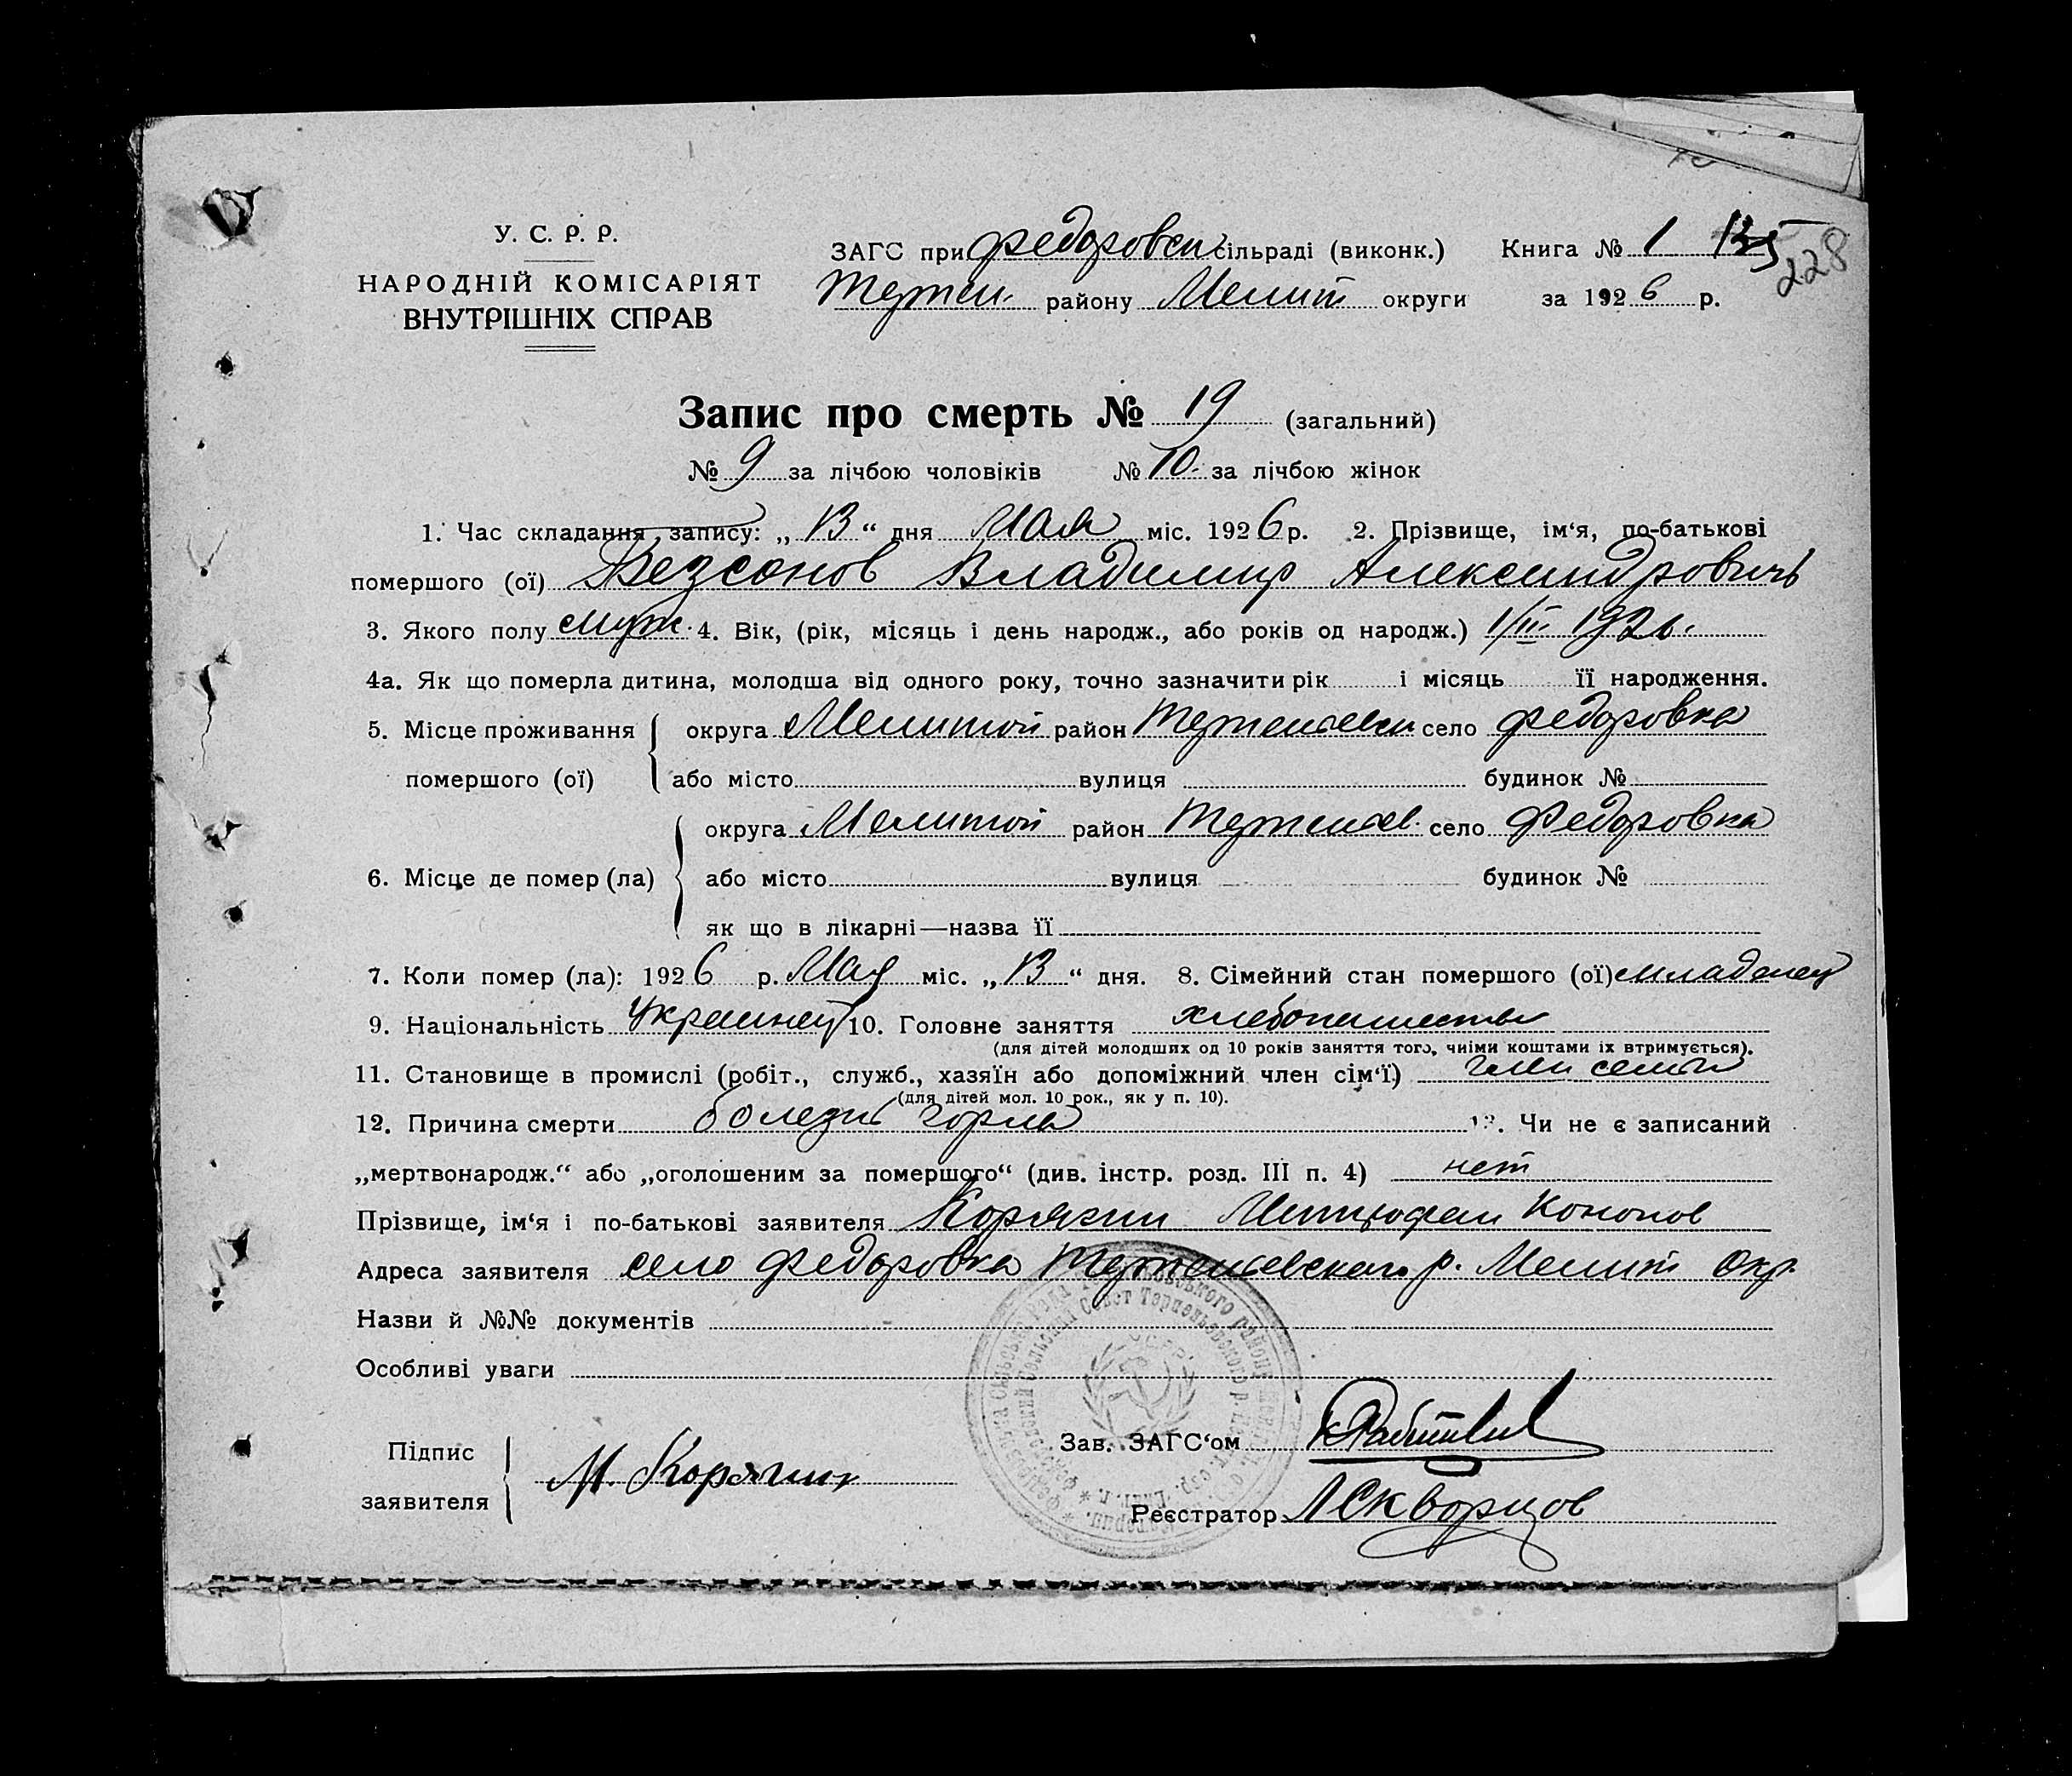 У. С. Р. Р.
НАРОДНІЙ КОМІСАРІЯТ
ВНУТРІШНІХ СПРАВ
ЗАГС при Федоровск сільраді (виконк.) Книга № 1 228
Терпен. району Мелит округи за 1926 р.
Запис про смерть № 19 (загальний)
№ 9 за лічбою чоловіків № 10. за лічбою жінок
1. Час складання запису: „13“ дня Мая міс. 1926 р. 2. Прізвище, ім‘я, по-батькові
помершого (ої) Безсонов Владимир Александрович
3. Якого полу муж. 4. Вік, (рік, місяць і день народж., або років од народж.) 1/III 192
4а. Як що померла дитина, молодша від одного року, точно зазначити рік і місяць її народження.
5. Місце проживання помершого (ої) округа Мелитоп район Терпеньевск село Федоровка
або місто вулиця будинок №
6. Місце де помер (ла) округа Мелитоп район Терпеньев. село Федоровка
або місто вулиця будинок №
як що в лікарні—назва її
7. Коли помер (ла): 1926 р. Мая міс. „13“ дня. 8. Сімейний стан помершого (ої) младенец
9. Національність Украинец 10. Головне заняття хлебопашество
(для дітей молодших од 10 років заняття того, чиїми коштами іх втримується).
11. Становище в промислі (робіт., служб., хазяїн або допоміжний член сім‘ї) член семьи
(для дітей мол. 10 рок., як у п. 10).
12. Причина смерти болезнь горла 13. Чи не є записаний
„мертвонародж.“ або „оголошеним за помершого“ (див. інстр. розд. III п. 4) нет
Прізвище, ім‘я і по-батькові заявителя Корякин Митрофан Кононов
Адреса заявителя село Федоровка Терпеньевского р. Мелит Окр.
Назви й №№ документів
Особливі уваги
Підпис заявителя М. Корякин
Зав. ЗАГС‘ом
Реєстратор Л Скворцов